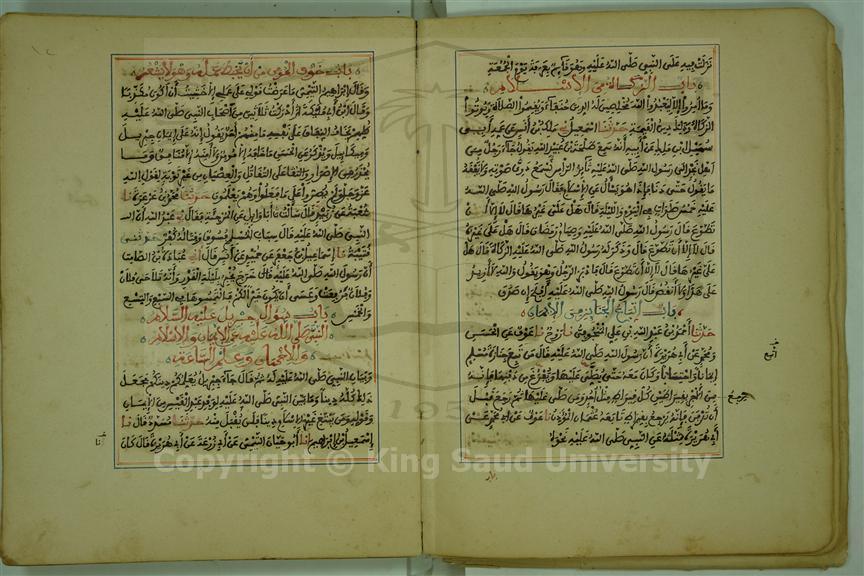 نزلت فيه على النبي صلى الله عليه وهو قائم بعرفة يوم الجمعة
باب الزكاة من الاسلام
وما أمروا إلا ليعبدوا الله مخلصين له الدين حنفاء ويقيموا الصلاة ويؤتوا
الزكاة وذلك دين القيمة حدثنا اسمعيل مالك بن أنس عن عمه أبي
سهيل بن مالك عن أبيه أنه سمع طلحة بن عبيد الله يقول جاء رجل من
اهل نجد الى رسول الله صلى الله عليه ثائر الرأس نسمع دوي صوته ولا نفقه
ما يقول حتى دنا فإذا هو يسأل عن الإسلام فقال رسول الله صلى الله
عليه خمس صلوات في اليوم والليلة فقال هل علي غيرها قال لا إلا أن
تطوع قال رسول الله صلى الله عليه وصيام رمضان قال هل علي غيره
قال لا إلا أن تطوع قال وذكر له رسول الله صلى الله عليه الزكاة قال هل
علي غيرها قال لا إلا أن تطوع قال فأدبر الرجل وهو يقول والله لا أزيد
على هذا ولا أنقص قال رسول الله صلى الله عليه أفلح إن صدق
باب اتباع الجنائز من الايمان
حدثنا أحمد بن عبد الله بن علي المنجوفي نا روح نا عوف عن الحسن
ومحمد عن أبي هريرة أن رسول الله صلى الله عليه قال من تبع جنازة مسلم
إيمانا واحتسابا وكان معه حتى يصلى عليها ويفرغ من دفنها فإنه
يرجع من الأجر بقيراطين كل قيراط مثل أحد ومن صلى عليها ثم رجع قبل
أن تدفن فإنه يرجع بقيراط تابعه عثمان المؤذن نا عوف عن محمد عن
أبي هريرة عن النبي صلى الله عليه نحوه
باب خوف المؤمن من أن يحبط عمله وهو لا يشعر
وقال إبراهيم التيمي ما عرضت قولي على عملي إلا خشيت أن أكون مكذبا
وقال ابن أبي مليكة أدركت ثلاثين من أصحاب النبي صلى الله عليه
كلهم يخاف النفاق على نفسه ما منهم أحد يقول إنه على إيمان جبريل
وميكاييل ويذكر عن الحسن ما خافه إلا مؤمن ولا أمنه إلا منافق وما
يحذر من الإصرار على التقاتل والعصيان من غير توبة لقول الله
عز وجل ولم يصروا على ما فعلوا وهم يعلمون حدثنا محمد بن عرعرة نا
شعبة عن زبيد قال سألت أبا وايل عن المرجئة فقال عبد الله أن
النبي صلى الله عليه قال سباب المسلم فسوق وقتاله كفر
قتيبة نا إسماعيل بن جعفر عن حميد عن أنس قال عبادة بن الصامت
أن رسول الله صلى الله عليه خرج يخبر بليلة القدر
فرفعت وعسى أن يكون خيرا لكم التمسوها في السبع والتسع
والخمس باب سؤال جبريل عليه السلام
النبي صلى الله عليه عن الايمان والاسلام
والاحسان وعلم الساعة
وبيان النبي صلى الله عليه له ثم قال جاء جبريل يعلمكم دينكم فجعل
ذلك كله دينا وما بين النبي صلى الله عليه لوفد عبد القيس من الإيمان
وقوله ومن يبتغ غير الإسلام دينا فلن يقبل منه حدثنا مسدد قال نا
إسمعيل بن إبراهيم أنا أبو حيان التيمي عن أبي زرعة عن أبي هريرة قال كان
Copyright © King Saud University